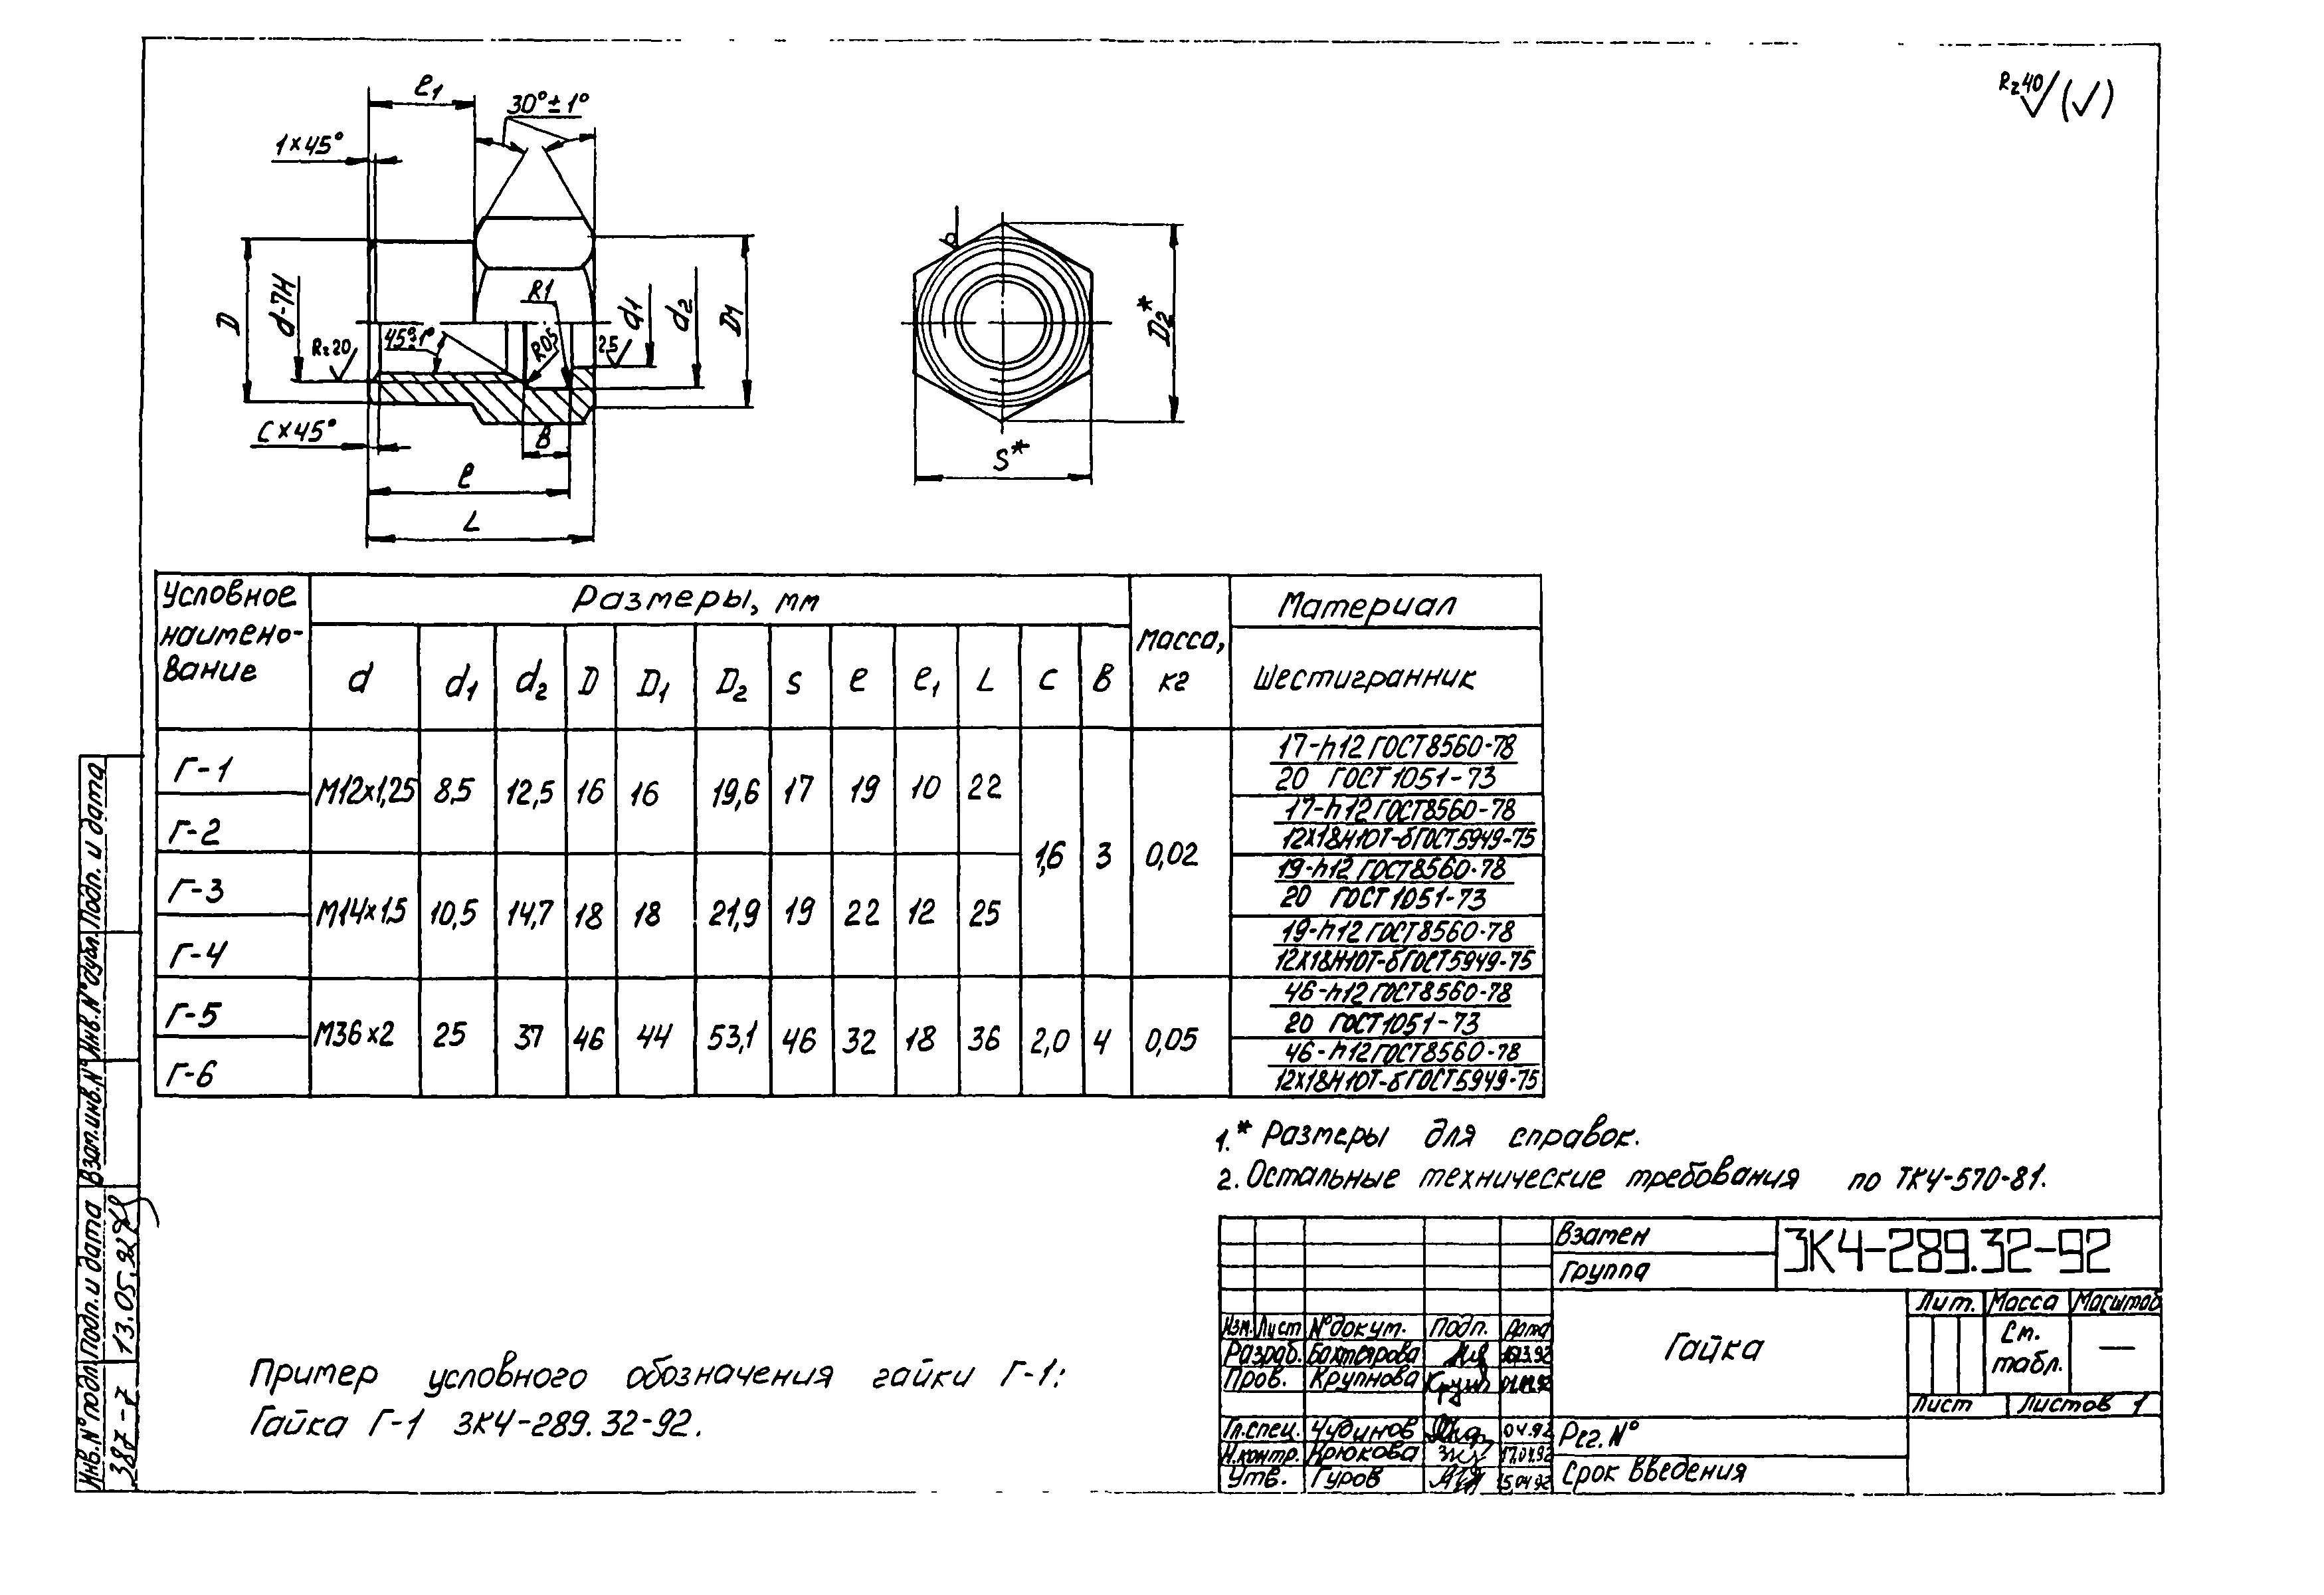 Rz40 (√)
e1
30°±1°
1×45°
D
d-7H
Rz20
45°±1°
R1
R0,5
2,5
d1
d2
D1
C×45°
B
e
L
D2*
S*
Условное наимено-вание
Размеры, мм
Масса, кг
Материал
d d1 d2 D D1 D2 S e e1 L C B
Шестигранник
Г-1
17-h12 ГОСТ 8560-78
20 ГОСТ 1051-73
М12×1,25 8,5 12,5 16 16 19,6 17 19 10 22
Г-2
17-h12 ГОСТ 8560-78
12Х18Н10Т-б ГОСТ 5949-75
1,6 3 0,02
Г-3
19-h12 ГОСТ 8560-78
20 ГОСТ 1051-73
М14×1,5 10,5 14,7 18 18 21,9 19 22 12 25
Г-4
19-h12 ГОСТ 8560-78
12Х18Н10Т-б ГОСТ 5949-75
Г-5
46-h12 ГОСТ 8560-78
20 ГОСТ 1051-73
М36×2 25 37 46 44 53,1 46 32 18 36 2,0 4 0,05
Г-6
46-h12 ГОСТ 8560-78
12Х18Н10Т-б ГОСТ 5949-75
1.* Размеры для справок.
2. Остальные технические требования по ТК4-570-81.
Пример условного обозначения гайки Г-1:
Гайка Г-1 ЗК4-289.32-92.
Взамен
Группа
ЗК4-289.32-92
Гайка
Лит. Масса Масштаб
См. табл. —
Лист Листов 1
Изм. Лист N° докум. Подп. Дата
Разраб. Бахтеярова
Пров. Крупнова
Гл.спец. Чудинов 04.92
Н.контр. Крюкова 17.04.92
Утв. Гуров 15.04.92
Рег. N°
Срок введения
Инв. N° подл. Подп. и дата Взам.инв.N° Инв. N° дубл. Подп. и дата
387-7 13.05.92